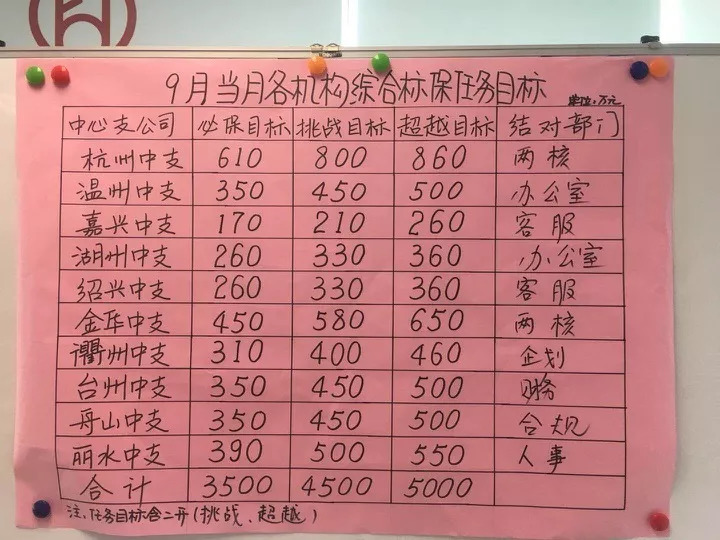 9月当月各机构综合标保任务目标
单位:万元
中心支公司 必保目标 挑战目标 超越目标 结对部门
杭州中支 610 800 860 两核
温州中支 350 450 500 办公室
嘉兴中支 170 210 260 客服
湖州中支 260 330 360 办公室
绍兴中支 260 330 360 客服
金华中支 450 580 650 两核
衢州中支 310 400 460 企划
台州中支 350 450 500 财务
舟山中支 350 450 500 合规
丽水中支 390 500 550 人事
合计 3500 4500 5000
注:任务目标含二开(挑战、超越)